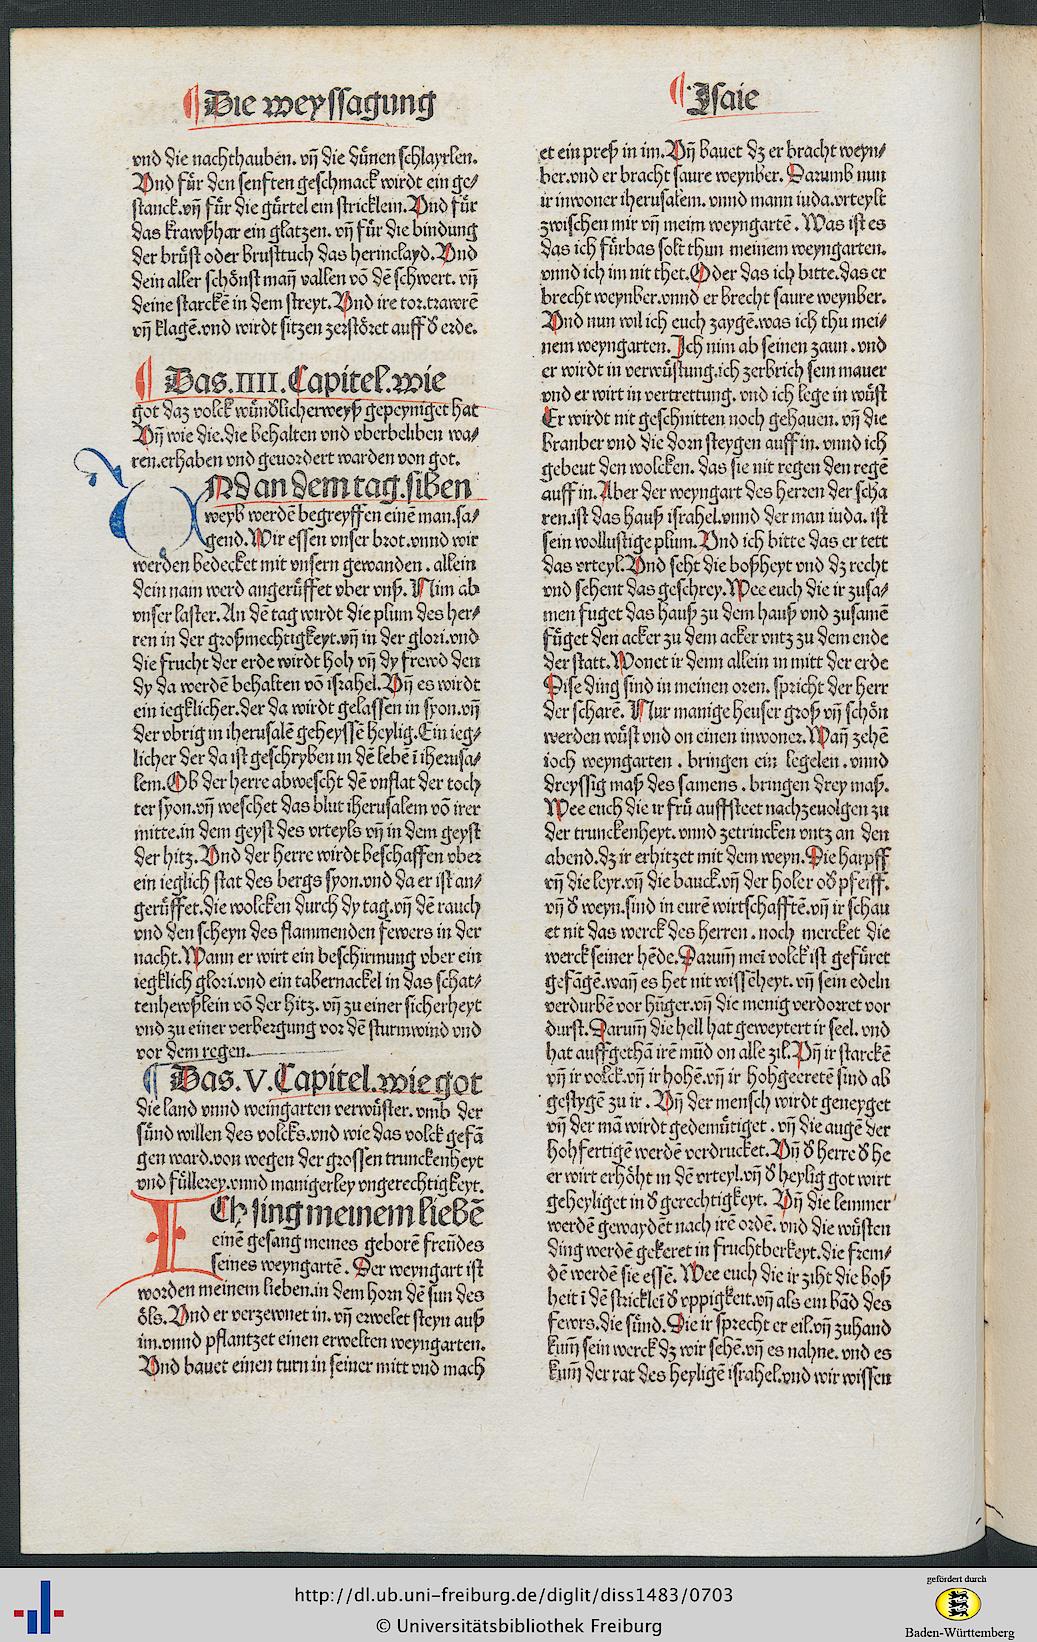 Die weyssagung
vnd die nachthauben. vñ die dünen schlayrlen.
Vnd für den senften geschmack wirdt ein ge⸗
stanck.vñ für die gürtel ein stricklein. Vnd für
das krawßhar ein glatzen. vñ für die bindung
der brüst oder brusttuch das herinclayd. Vnd
dein aller schönst mañ vallen võ dẽ schwert. vñ
deine starckẽ in dem streyt. Vnd ire tor.trawrẽ
vñ klagẽ.vnd wirdt sitzen zerstöret auff d̕ erde.
¶ Das.IIII.Capitel.wie
got daz volck wũd̕licherweyß gepeyniget hat
Vñ wie die.die behalten vnd vberbeliben wa⸗
ren.erhaben vnd geuordert warden von got.
VNd an dem tag.siben
weyb werdẽ begreyffen einẽ man.sa⸗
gend. Wir essen vnser brot.vnnd wir
werden bedecket mit vnsern gewanden. allein
dein nam werd angerüffet vber vnß. Nim ab
vnser laster. An dẽ tag wirdt die plum des her⸗
ren in der großmechtigkeyt.vñ in der glori.vnd
die frucht der erde wirdt hoh vñ dy frewd den
dy da werdẽ behalten võ israhel. Vñ es wirdt
ein iegklicher.der da wirdt gelassen in syon.vñ
der vbrig in iherusalẽ geheyssẽ heylig. Ein ieg⸗
licher der da ist geschryben in dẽ lebẽ ĩ iherusa⸗
lem. Ob der herre abwescht dẽ vnflat der toch
ter syon.vñ weschet das blut iherusalem võ irer
mitte.in dem geyst des vrteyls vñ in dem geyst
der hitz. Vnd der herre wirdt beschaffen vber
ein ieglich stat des bergs syon.vnd da er ist an⸗
gerüffet.die wolcken durch dy tag.vñ dẽ rauch
vnd den scheyn des flammenden fewers in der
nacht. Wann er wirt ein beschirmung vber ein
iegklich glori.vnd ein tabernackel in das schat⸗
tenhewßlein võ der hitz. vñ zu einer sicherheyt
vnd zu einer verbergung vor dẽ sturmwind vnd
vor dem regen.
¶ Das.V.Capitel.wie got
die land vnnd weingarten verwüster. vmb der
sünd willen des volcks.vnd wie das volck gefã
gen ward.von wegen der grossen trunckenheyt
vnd füllerey.vnnd manigerley vngerechtigkeyt.
ICh sing meinem liebẽ
einẽ gesang meines geborẽ freũdes
seines weyngartẽ. Der weyngart ist
worden meinem lieben.in dem horn dẽ sun des
öls. Vnd er verzewnet in. vñ erwelet steyn auß
im.vnnd pflantzet einen erwelten weyngarten.
Vnd bauet einen turn in seiner mitt vnd mach
¶ Isaie
et ein preß in im. Vñ bauet dz er bracht weyn⸗
ber.vnd er bracht saure weynber. Darumb nun
ir inwoner iherusalem. vnnd mann iuda.vrteylt
zwischen mir vñ meim weyngartẽ. Was ist es
das ich fürbas solt thun meinem weyngarten.
vnnd ich im nit thet. Oder das ich bitte.das er
brecht weynber.vnnd er brecht saure weynber.
Vnd nun wil ich euch zaygẽ.was ich thu mei⸗
nem weyngarten. Ich nim ab seinen zaun. vnd
er wirdt in verwüstung.ich zerbrich sein mauer
vnd er wirt in vertrettung. vnd ich lege in wüst
Er wirdt nit geschnitten noch gehauen. vñ die
branber vnd die dorn steygen auff in. vnnd ich
gebeut den wolcken. das sie nit regen den regẽ
auff in. Aber der weyngart des herren der scha
ren.ist das hauß israhel.vnnd der man iuda. ist
sein wollustige plum. Vnd ich bitte das er tett
das vrteyl. Vnd seht die boßheyt vnd dz recht
vnd sehent das geschrey. Wee euch die ir zusa⸗
men fuget das hauß zu dem hauß vnd zusamẽ
füget den acker zu dem acker vntz zu dem ende
der statt. Wonet ir denn allein in mitt der erde
Dise ding sind in meinen oren. spricht der herr
der scharẽ. Nur manige heuser groß vñ schön
werden wüst vnd on einen inwoner. Wañ zehẽ
ioch weyngarten. bringen ein legelen. vnnd
dreyssig maß des samens. bringen drey maß.
Wee euch die ir frü auffsteet nachzeuolgen zu
der trunckenheyt. vnnd zetrincken vntz an den
abend.dz ir erhitzet mit dem weyn. Die harpff
vñ die leyr.vñ die bauck.vñ der holer od̕ pfeiff.
vñ d̕ weyn.sind in eurẽ wirtschafftẽ.vñ ir schau
et nit das werck des herren. noch mercket die
werck seiner hẽde. Daruñ mei volck ist gefüret
gefãgẽ.wañ es het nit wissẽheyt. vñ sein edeln
verdurbẽ vor hũger.vñ die menig verdorret vor
durst. Daruñ die hell hat geweytert ir seel. vnd
hat auffgethã irẽ mũd on alle zil. Vñ ir starckẽ
vñ ir volck.vñ ir hohẽ.vñ ir hohgeeretẽ sind ab
gestygẽ zu ir. Vñ der mensch wirdt geneyget
vñ der mã wirdt gedemütiget. vñ die augẽ der
hohfertigẽ werdẽ verdrucket. Vñ d̕ herre d̕ he
er wirt erhöht in dẽ vrteyl.vñ d̕ heylig got wirt
geheyliget in d̕ gerechtigkeyt. Vñ die lemmer
werdẽ gewaydet nach irẽ ordẽ. vnd die wüsten
ding werdẽ gekeret in fruchtberkeyt.die frem⸗
dẽ werdẽ sie essẽ. Wee euch die ir ziht die boß
heit ĩ dẽ stricklei d̕ vppigkeit.vñ als ein bãd des
fewrs.die sünd. Die ir sprecht er eil.vñ zuhand
kum̃ sein werck dz wir sehẽ.vñ es nahne. vnd es
kum̃ der rat des heyligẽ israhel.vnd wir wissen
http://dl.ub.uni-freiburg.de/diglit/diss1483/0703
© Universitätsbibliothek Freiburg
gefördert durch
Baden-Württemberg